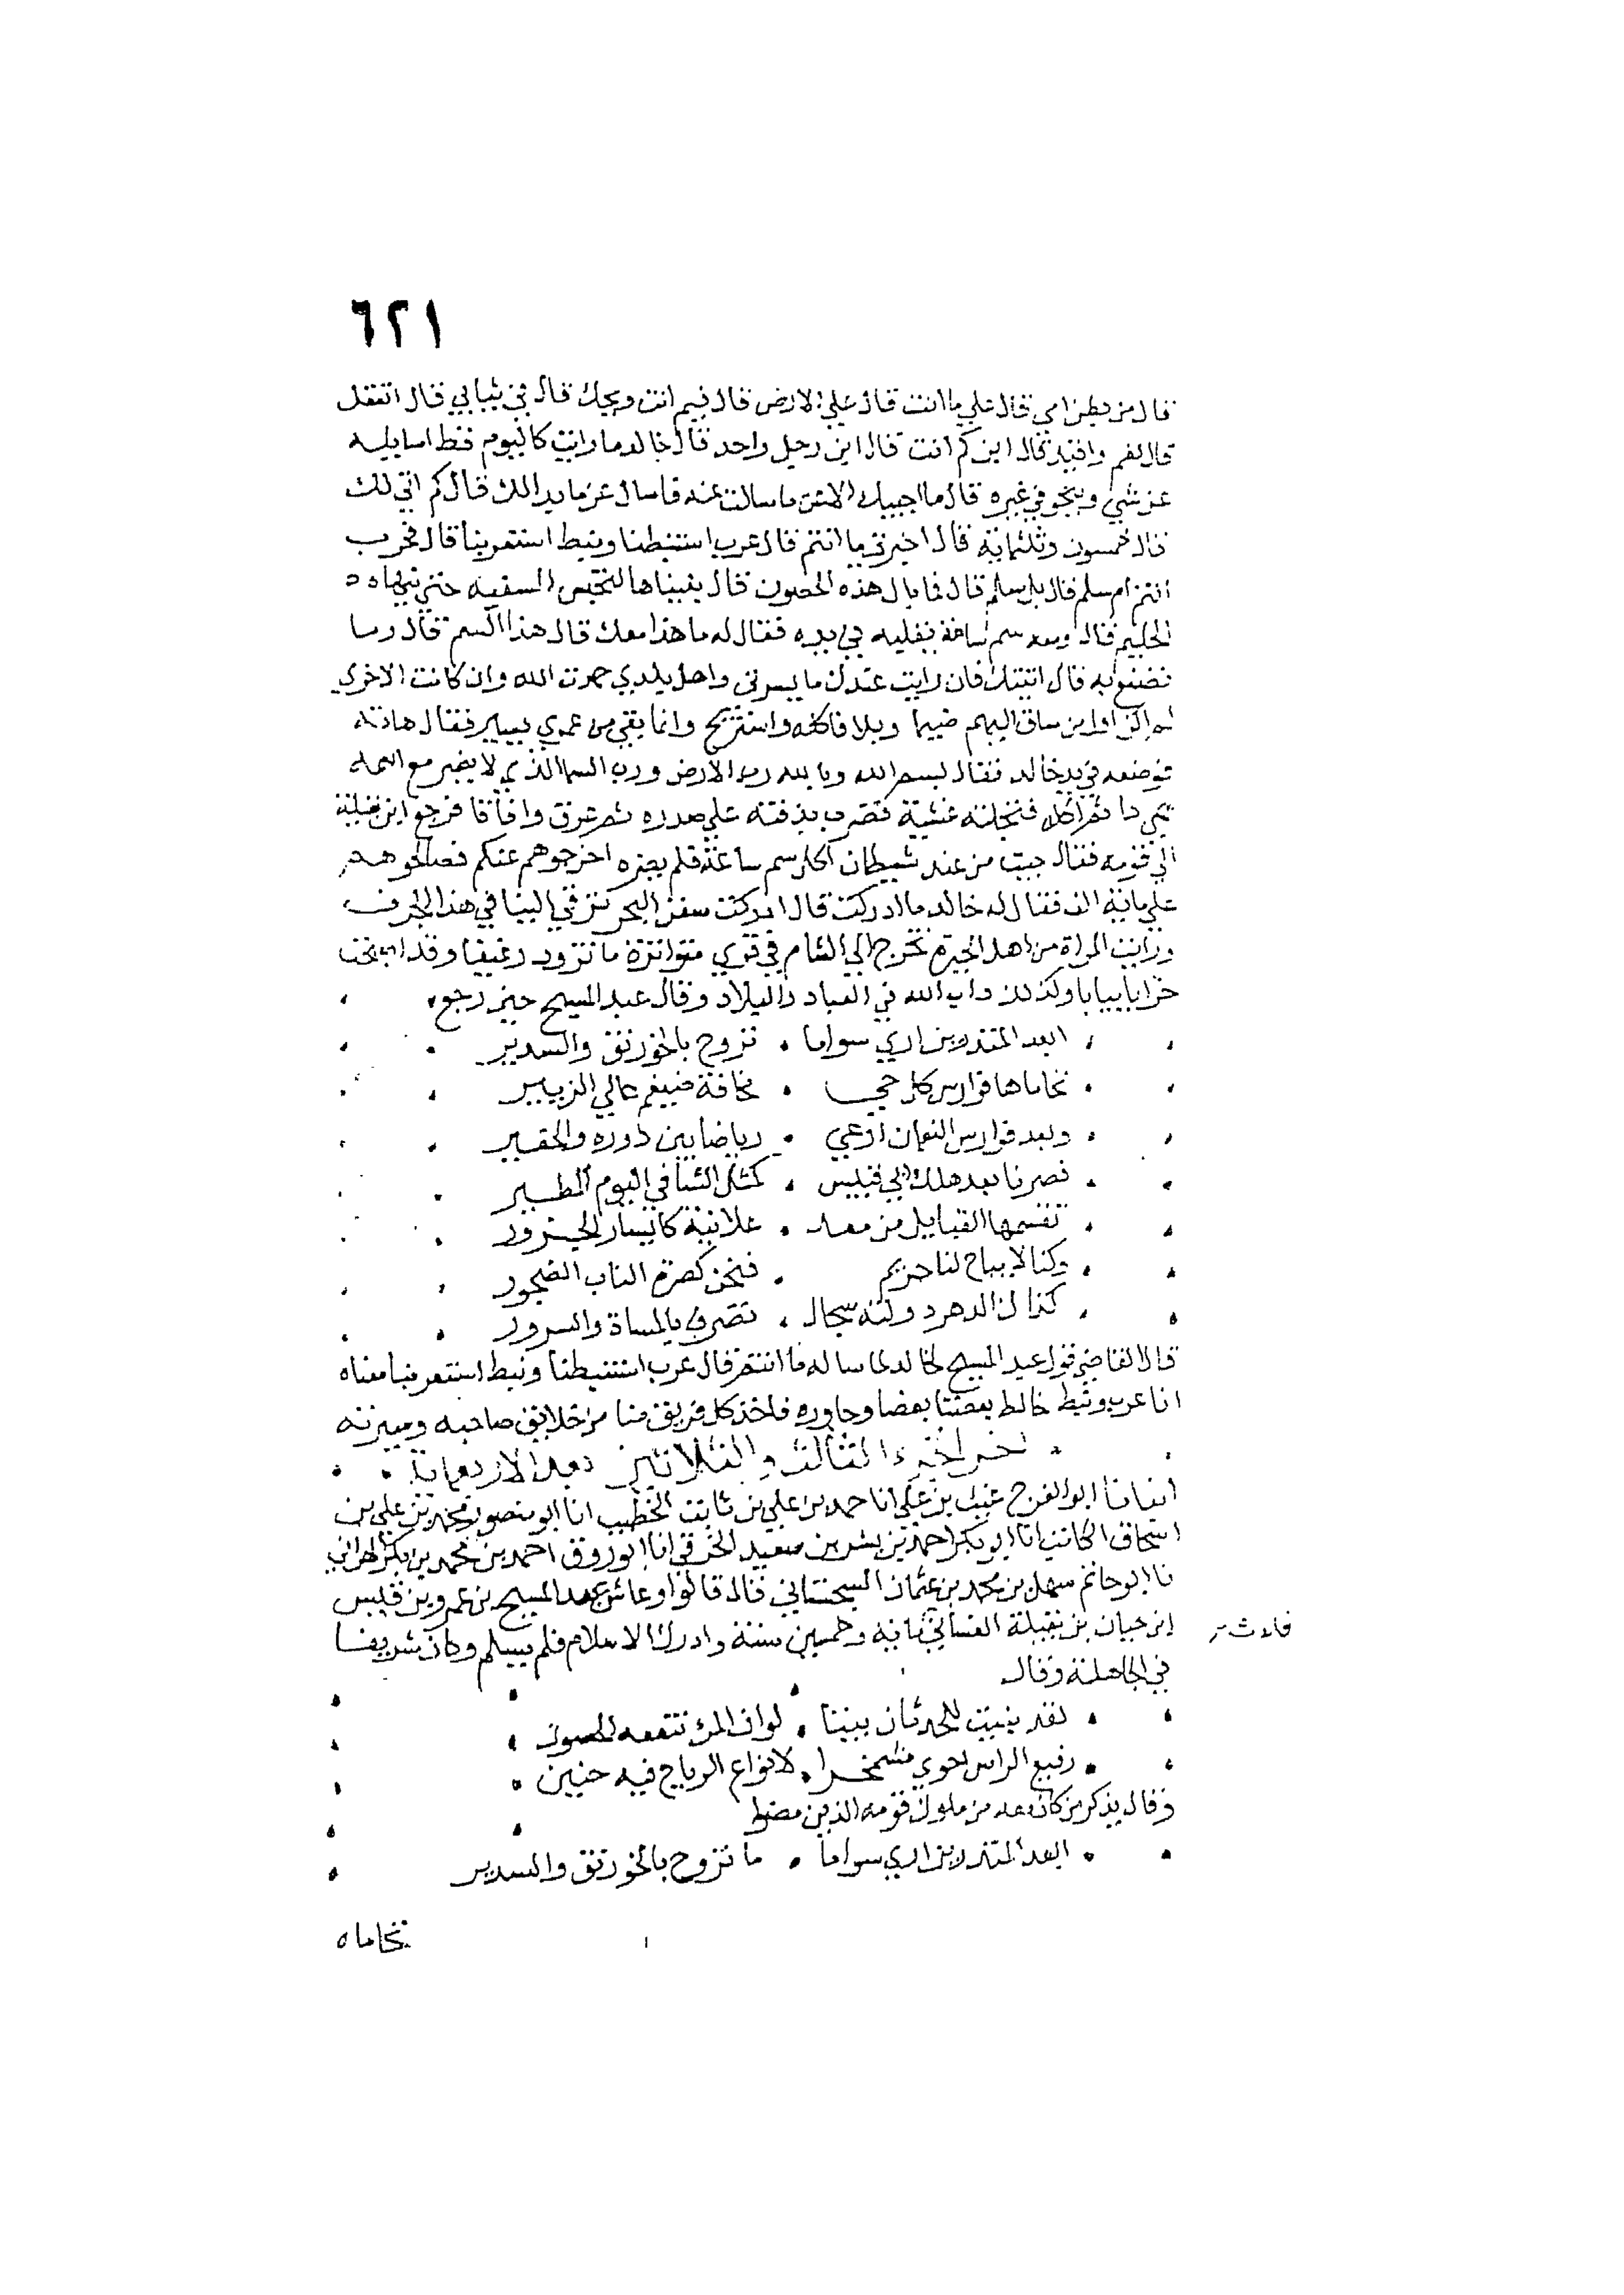 ٦٢١
قال من بطن امي قال علي ما انت قال علي الارض قال فيم انت ويحك قال في ثيابي قال اتعقل
قال نعم واقيد قال ابن كم انت قال ابن رجل واحد قال خالد ما رايت كاليوم قط اسايله
عن شي وينحو في غيره قال ما اجبتك الا عن ما سالت عنه فاسال عن ما بدا لك قال كم اتي لك
قال خمسون وثلثماية قال اخبرني ما انتم قال عرب استنبطنا ونبط استعربنا قال فحرب
انتم ام سلم قال بل سلم قال فما بال هذه الحصون قال بنيناها لتحبس السفيه حتي ينهاه
الحليم قال ومعه سم ساعة يقلبه في يده فقال له ما هذا معك قال هذا السم قال وما
تصنع به قال اتيتك فان رايت عندك ما يسرني واهل بلدي حمدت الله وان كانت الاخري
لم اكن اول من ساق اليهم ضيما وبلا فاكله واستريح وانما بقي من عمري يسير فقال هاته
فوضعه في يد خالد فقال بسم الله وبالله رب الارض ورب السما الذي لا يضر مع اسمه
شي دا ثم اكله فتجللته غشية فضرب بذقنه علي صدره ثم عرق وافاق فرجع ابن بقيلة
الي قومه فقال جيت من عند شيطان اكل سم ساعة فلم يضره اخرجوهم عنكم فصالحوهم
علي ماية الف فقال له خالد ما ادركت قال ادركت سفن البحر ترقي الينا في هذا الجرف
ورايت المراة من اهل الحيرة تخرج الي الشام في قري متواترة ما تزود رغيفا وقد اصبحت
خرابا يبابا وكذلك داب الله في العباد والبلاد وقال عبد المسيح حين رجع
ابعد المنذرين اري سواما . تروح بالخورنق والسدير
تحاماها فوارس كل حي . مخافة ضيغم عالي الزيير
وبعد فوارس النعمان ارعي . رياضا بين دوره والحفير
فصرنا بعد هلك ابي قبيس . كمثل الشا في اليوم المطير
تقسمها القبايل من معد . علانية كايسار الجزور
وكنا لا يباح لنا حريم . فنحن كضرة الناب الضجور
كذاك الدهر دولته سجال . تصرف بالمساة والسرور
قال القاضي قول عبد المسيح لخالد لما ساله ما انتم قال عرب استنبطنا ونبط استعربنا معناه
انا عرب ونبط خالط بعضنا بعضا وجاوره فاخذ كل فريق منا من خلايق صاحبه وسيرته
اخر الجزء الثالث والثلاثين بعد الاربعماية
انبانا ابو الفرج غيث بن علي انا احمد بن علي بن ثابت الخطيب انا ابو منصور محمد بن علي بن
اسحاق الكاتب انا ابو بكر احمد بن بشر بن سعيد الخرقي انا ابو روق احمد بن محمد بن بكر الهزاني
نا ابو حاتم سهل بن محمد بن عثمان السجستاني قال قالوا وعاش عبد المسيح بن عمرو بن قيس
ابن حيان بن بقيلة الغساني ماية وخمسين سنة وادرك الاسلام فلم يسلم وكان شريفا
في الجاهلية وقال
لقد بنيت للحدثان بيتا . لو ان المرء تنفعه الحصون
رفيع الراس احوي مشمخرا . لانواع الرياح فيه حنين
وقال يذكر من كان معه من ملوك قومه الذين مضوا
ابعد المنذرين اري سواما . ما تروح بالخورنق والسدير
تحاماه